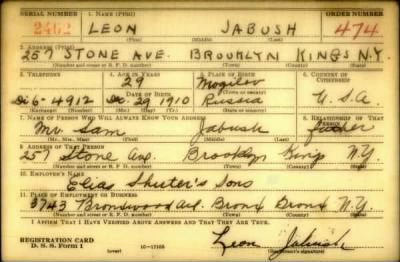 SERIAL NUMBER 1. NAME (Print) ORDER NUMBER
2462 LEON JABUSH 474
(First) (Middle) (Last)
2. ADDRESS (Print)
257 STONE AVE. BROOKLYN KINGS N.Y.
(Number and street or R. F. D. number) (Town) (County) (State)
3. TELEPHONE 4. AGE IN YEARS 5. PLACE OF BIRTH 6. COUNTRY OF CITIZENSHIP
29 Mogilev
DATE OF BIRTH (Town or county)
Di 6-4912 Dec. 29 1910 Russia U.S.A.
(Exchange) (Number) (Mo.) (Day) (Yr.) (State or country)
7. NAME OF PERSON WHO WILL ALWAYS KNOW YOUR ADDRESS 8. RELATIONSHIP OF THAT PERSON
Mr. Sam Jabush father
(Mr., Mrs., Miss) (First) (Middle) (Last)
9. ADDRESS OF THAT PERSON
257 Stone Ave. Brooklyn Kings N.Y.
(Number and street or R. F. D. number) (Town) (County) (State)
10. EMPLOYER'S NAME
Elias Shuter's Sons
11. PLACE OF EMPLOYMENT OR BUSINESS
3743 Bronxwood Ave. Bronx Bronx N.Y.
(Number and street or R. F. D. number) (Town) (County) (State)
I AFFIRM THAT I HAVE VERIFIED ABOVE ANSWERS AND THAT THEY ARE TRUE.
REGISTRATION CARD
D. S. S. Form 1 16-17105 Leon Jabush